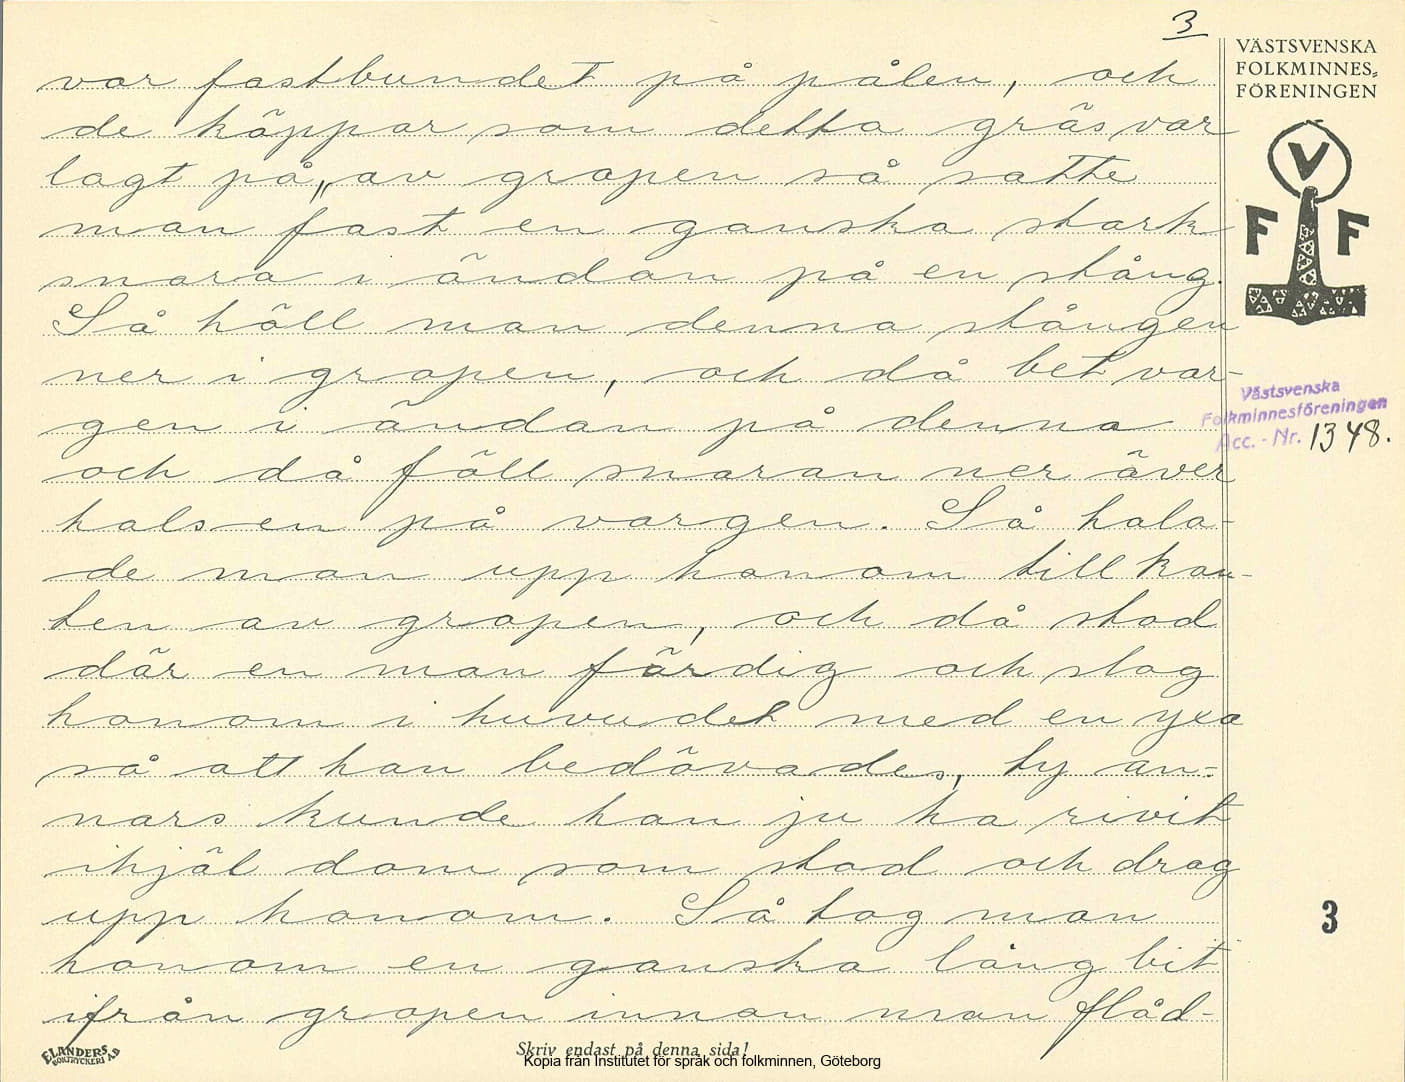 3
VÄSTSVENSKA
FOLKMINNES-
FÖRENINGEN
V
F F
Västsvenska
Folkminnesföreningen
Acc. - Nr. 1348.
var fastbundet på pålen, och
de käppar som detta gräs var
lagt på„ av gropen så satte
man fast en ganska stark
snara i ändan på en stång.
Så höll man denna stången
ner i gropen, och då bet var-
gen i ändan på denna
och då föll snaran ner över
halsen på vargen. Så hala-
de man upp honom till kan-
ten av gropen, och då stod
där en man färdig och slog
honom i huvudet med en yxa
så att han bedövades, ty an-
nars kunde han ju ha rivit
ihjäl dom som stod och drog
upp honom. Så tog man
honom en ganska lång bit
ifrån gropen innan man flåd-
3
ELANDERS
BOKTRYCKERI AB
Skriv endast på denna sida!
Kopia från Institutet för språk och folkminnen, Göteborg